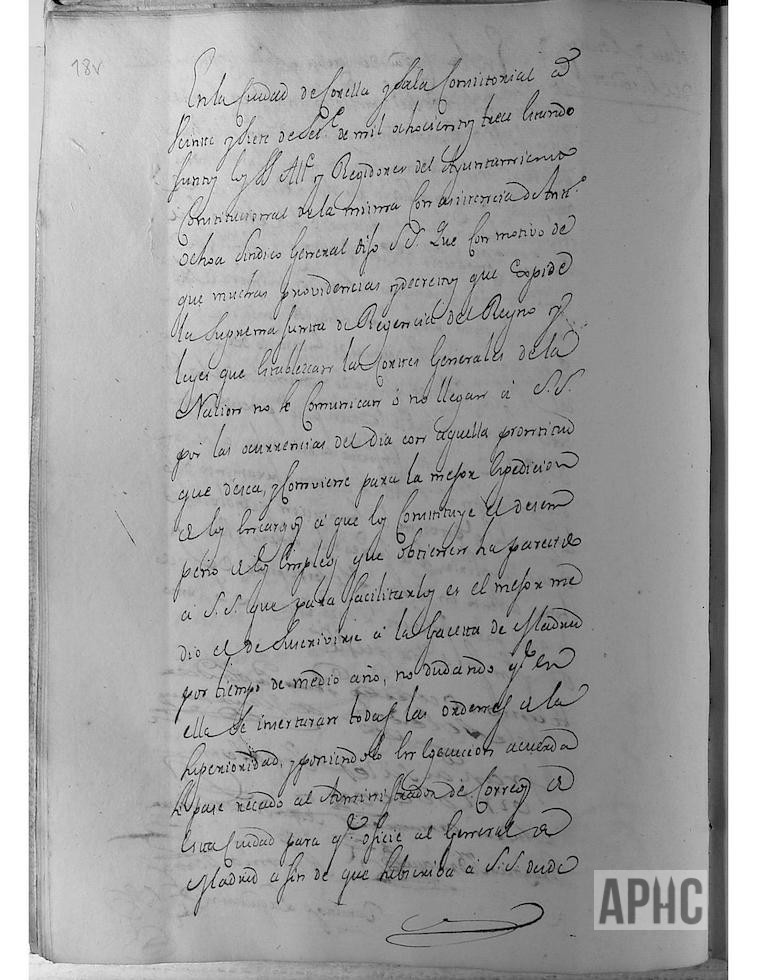 18v
En la Ciudad de Corella y sala Consistorial a
veinte y siete de Set.e de mil ochocientos trece estando
juntos los SS. Alc.e y Regidores del Ayuntamiento
Constitucional de la misma con asistencia de Ant.o
Ochoa Sindico General dijo S.S. Que con motivo de
que muchas providencias y decretos que expide
la Suprema Junta de Regencia del Reyno y
leyes que establezcan las Cortes Generales de la
Nacion no se comunican ó no llegan á S.S.
por las ocurrencias del dia con aquella prontitud
que desea, y conviene para la mejor Expedicion
de los encargos á que los Constituye el desem
peño de los Empleos que obtienen ha parecido
á S.S. que para facilitarlos es el mejor me
dio el de suscrivirse á la Gaceta de Madrid
por tiempo de medio año, no dudando q.e en
ella se insertaran todas las ordenes de la
superioridad, y poniendolo en Egecucion acuerda
se pase recado al Administrador de Correos de
esta Ciudad para q.e oficie al General de
Madrid a fin de que subscriba á S.S. desde
APHC